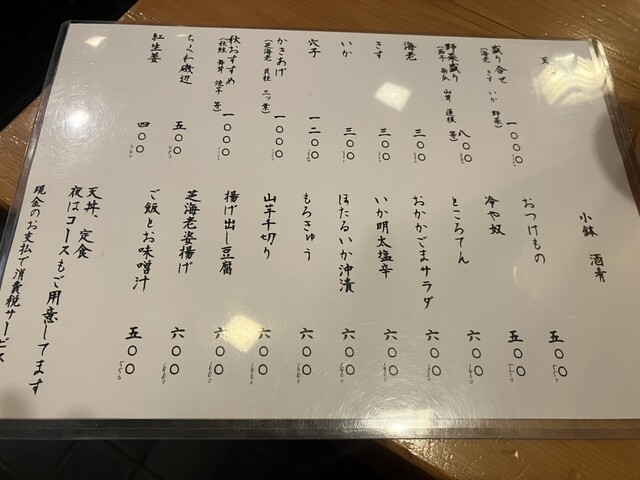 天
盛り合せ 一〇〇〇
(海老 きす いか 野菜)
野菜盛り 八〇〇
海老 三〇〇
きす 三〇〇
いか 三〇〇
穴子 一二〇〇
かきあげ 一〇〇〇
(芝海老 貝柱 三ッ葉)
秋おすすめ 一〇〇〇
ちくわ磯辺 五〇〇
紅生姜 四〇〇
小鉢 酒肴
おつけもの 五〇〇
550
冷や奴 五〇〇
550
ところてん 六〇〇
660
おかかごまサラダ 六〇〇
660
いか明太塩辛 六〇〇
660
ほたるいか沖漬 六〇〇
660
もろきゅう 六〇〇
660
山芋千切り 六〇〇
660
揚げ出し豆腐 六〇〇
660
芝海老姿揚げ 六〇〇
660
ご飯とお味噌汁 五〇〇
550
天丼、定食
夜はコースもご用意してます
現金のお支払で消費税サービス